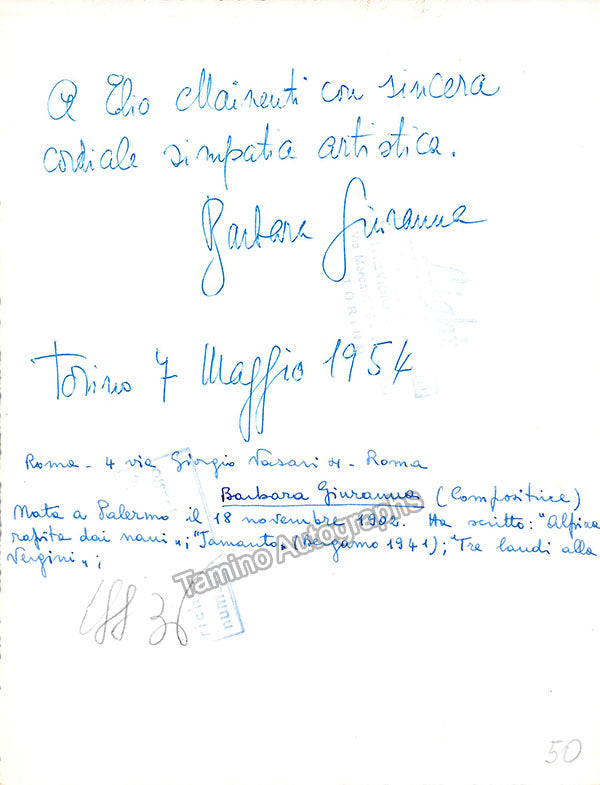 A Elio Mainenti con sincera
cordiale simpatia artistica.
Barbara Giuranna
Torino 7 Maggio 1954
Roma - 4 via Giorgio Vasari 4 - Roma
Barbara Giuranna (Compositrice)
Nata a Palermo il 18 novembre 1902. Ha scritto: "Alpina
rapita dai nani"; "Jamanto" (Bergamo 1941); "Tre laudi alla
Vergini";
Tamino Autographs
TORINO
50